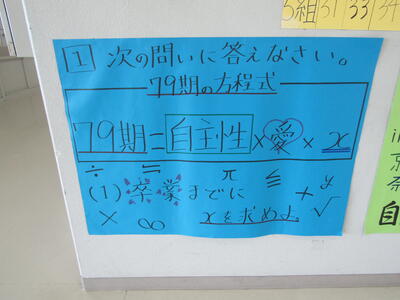 5組 31 33 34
1 次の問いに答えなさい。
79期の方程式
79期=自主性×愛×x
÷ π
(1) 卒業までに + y
× ∞ xを求めよ。 √
in
京
自